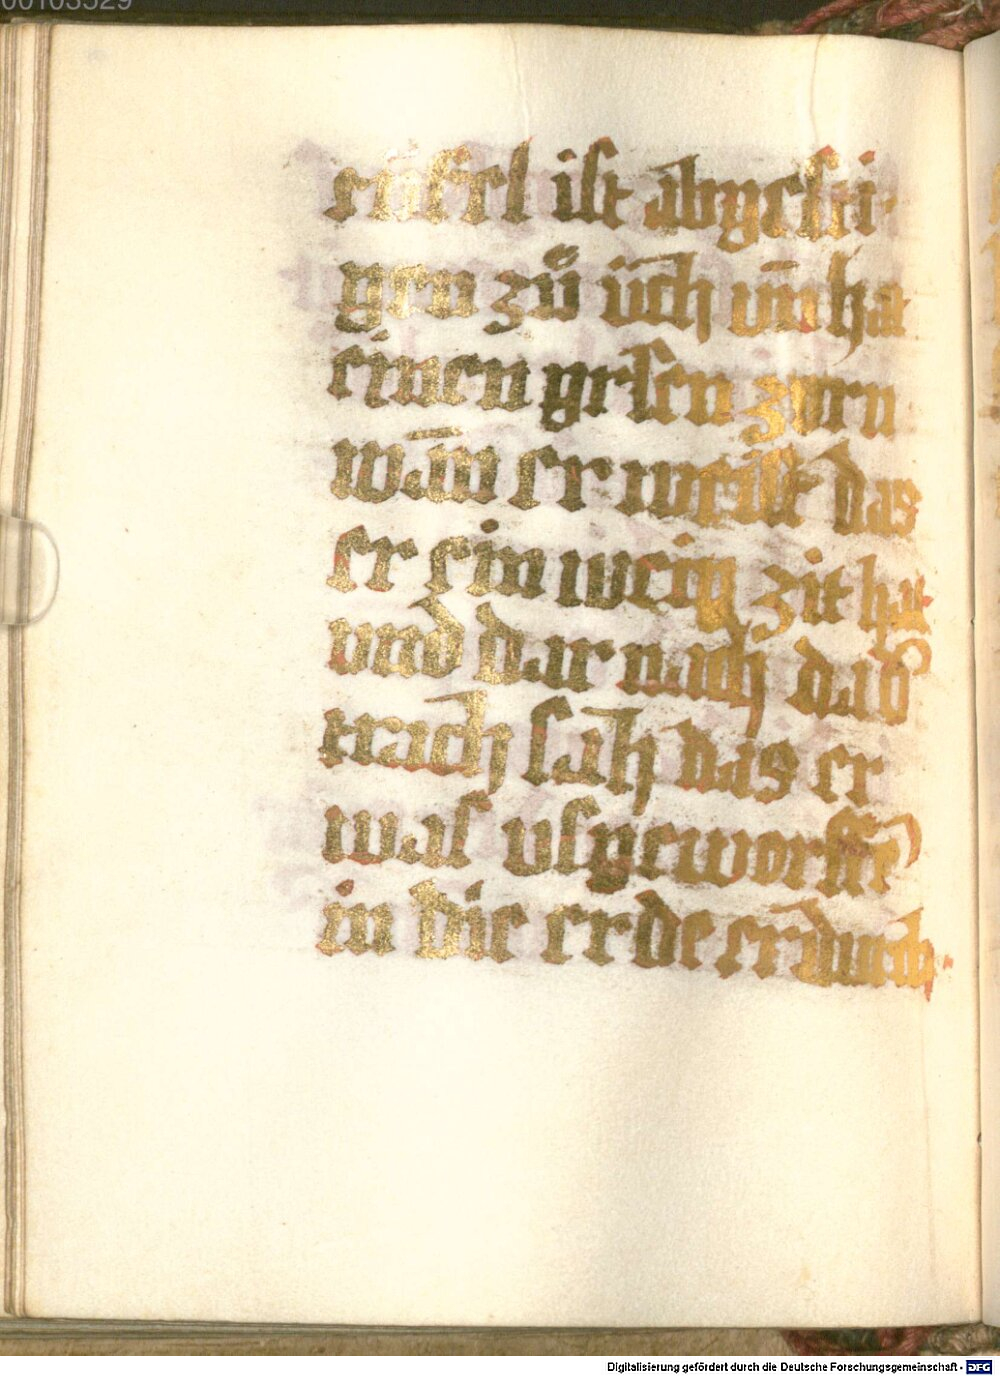 00103529
eüfel ist abgesti
gen zů üch vn̄ ha
einen grosen zorn
wān er weist das
er ein wenig zit hat
vnd dar nach da d̕
trach sah das er
was usgeworffē
in die erde er durch
Digitalisierung gefördert durch die Deutsche Forschungsgemeinschaft - DFG